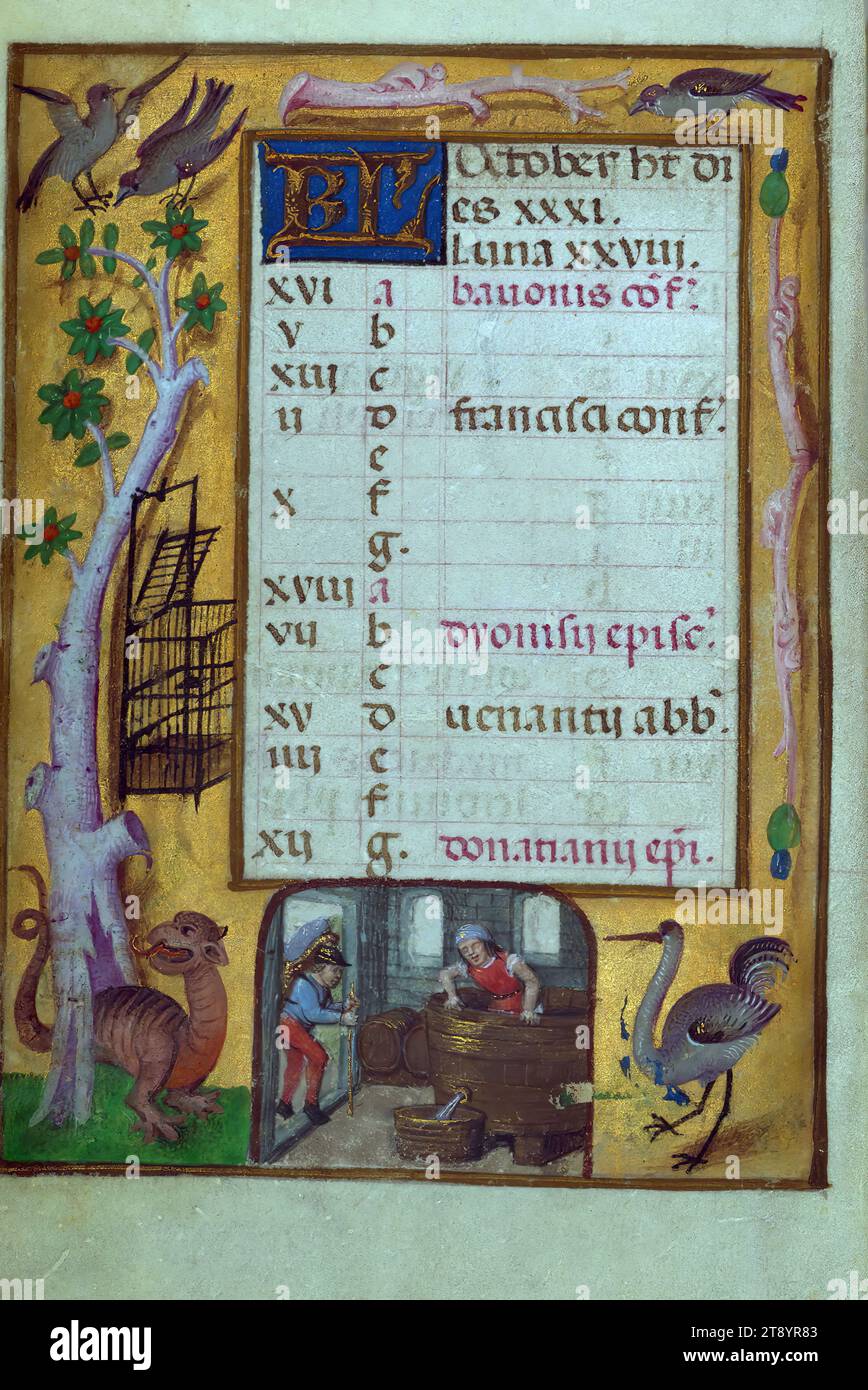 KL October ht di
es xxxi.
Luna xxviii.
xvi a bauonis cōf.
v b
xiii c
ii d francisci conf.
e
x f
g.
xviii a
vii b dyonisii episc.
c
xv d uenantii abb.
iiii e
f
xii g. donatianii epi.
alamy
Image ID: 2T8YR83
www.alamy.com